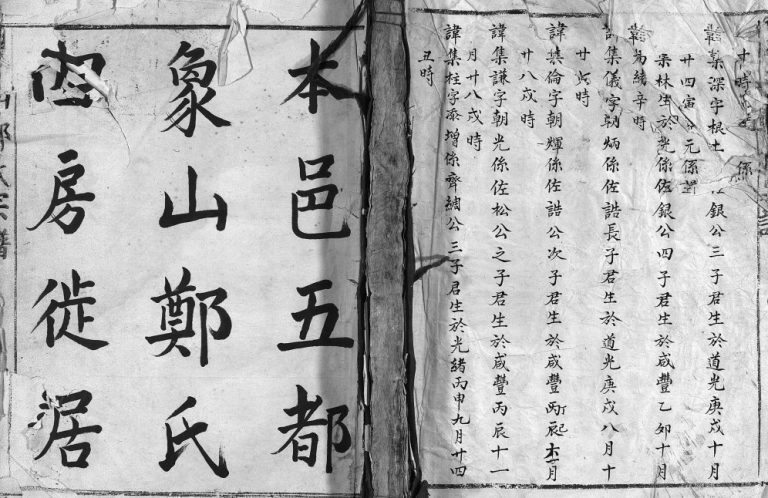 十時 係
集深字根土 銀公三子君生於道光庚戌十月
廿四寅 元係
林生於光係佐銀公四子君生於咸豐乙卯十月
辛時
集儀字朝炳係佐誥長子君生於道光庚戌八月十
廿 時
諱集倫字朝輝係佐誥公次子君生於咸豐丙辰 月
廿八戌時
諱集謙字朝光係佐松公之子君生於咸豐丙辰十一
月廿八戌時
諱集柱字添增係齊 公三子君生於光緒丙申九月廿四
丑時
本邑五都
象山鄭氏
房徙居